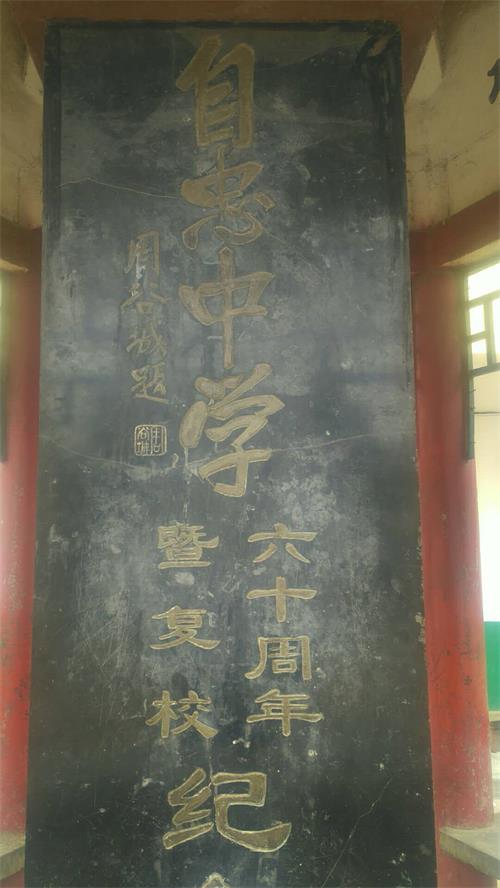 自忠中学
周谷城题
周谷城
六十周年
暨复校
纪